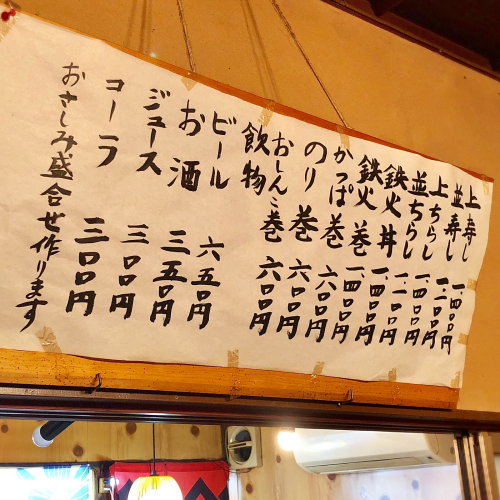 上寿し 一.四〇〇円
並寿し 一.二〇〇円
上ちらし 一.四〇〇円
並ちらし 一.二〇〇円
鉄火丼 一.四〇〇円
鉄火巻 一.四〇〇円
かっぱ巻 六〇〇円
のり巻 六〇〇円
おしんこ巻 六〇〇円
飲物
ビール 六五〇円
お酒 三五〇円
ジュース 三〇〇円
コーラ 三〇〇円
おさしみ盛合せ作ります